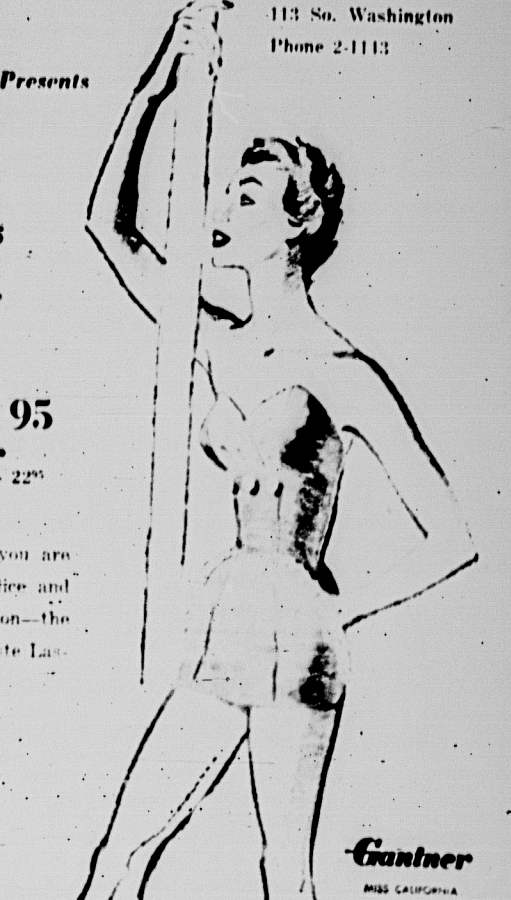 113 So. Washington
Phone 2-1113
Presents
95
22⁹⁵
you are
ice and
on—the
te Las-
Gantner
MISS CALIFORNIA